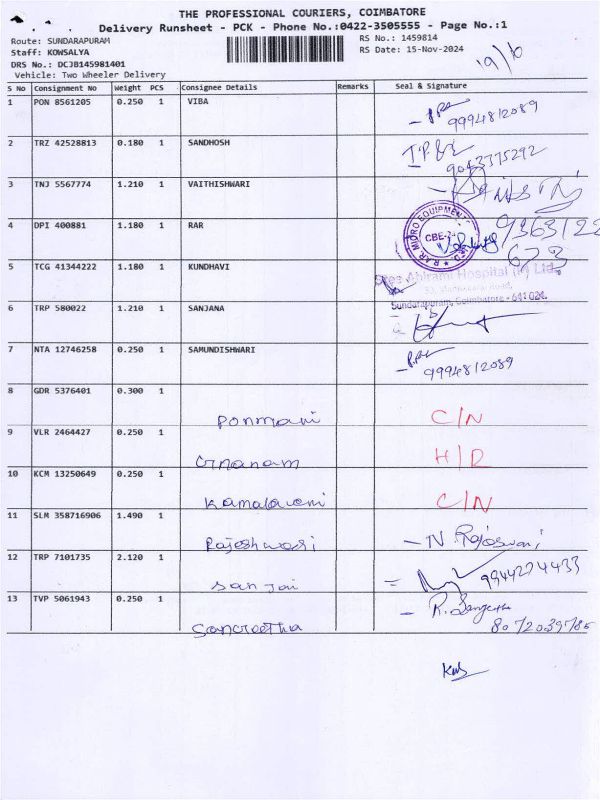 THE PROFESSIONAL COURIERS, COIMBATORE
Delivery Runsheet - PCK - Phone No.:0422-3505555 - Page No.:1
Route: SUNDARAPURAM
RS No.: 1459814
Staff: KOWSALYA
RS Date: 15-Nov-2024
19/10
DRS No.: DCJB145981401
Vehicle: Two Wheeler Delivery
S No Consignment No Weight PCS Consignee Details Remarks Seal & Signature
1 PON 8561205 0.250 1 VIBA
9994812089
2 TRZ 42528813 0.180 1 SANDHOSH
9043775292
3 TNJ 5567774 1.210 1 VAITHISHWARI
4 DPI 400881 1.180 1 RAR
RAR MICRO EQUIPMENT
CBE-24
9363122
673
5 TCG 41344222 1.180 1 KUNDHAVI
Sree Abirami Hospital (P) Ltd.,
Sundarapuram, Coimbatore - 641 024.
6 TRP 580022 1.210 1 SANJANA
7 NTA 12746258 0.250 1 SAMUNDISHWARI
9994812089
8 GDR 5376401 0.300 1
Ponmani C/N
9 VLR 2464427 0.250 1
Gnanam H/R
10 KCM 13250649 0.250 1
Kamalaveni C/N
11 SLM 358716906 1.490 1
Rajeshwari - N Rajeswari
12 TRP 7101735 2.120 1
Sanjai 9944274433
13 TVP 5061943 0.250 1
Sangeetha - R. Sangeetha
8072039785